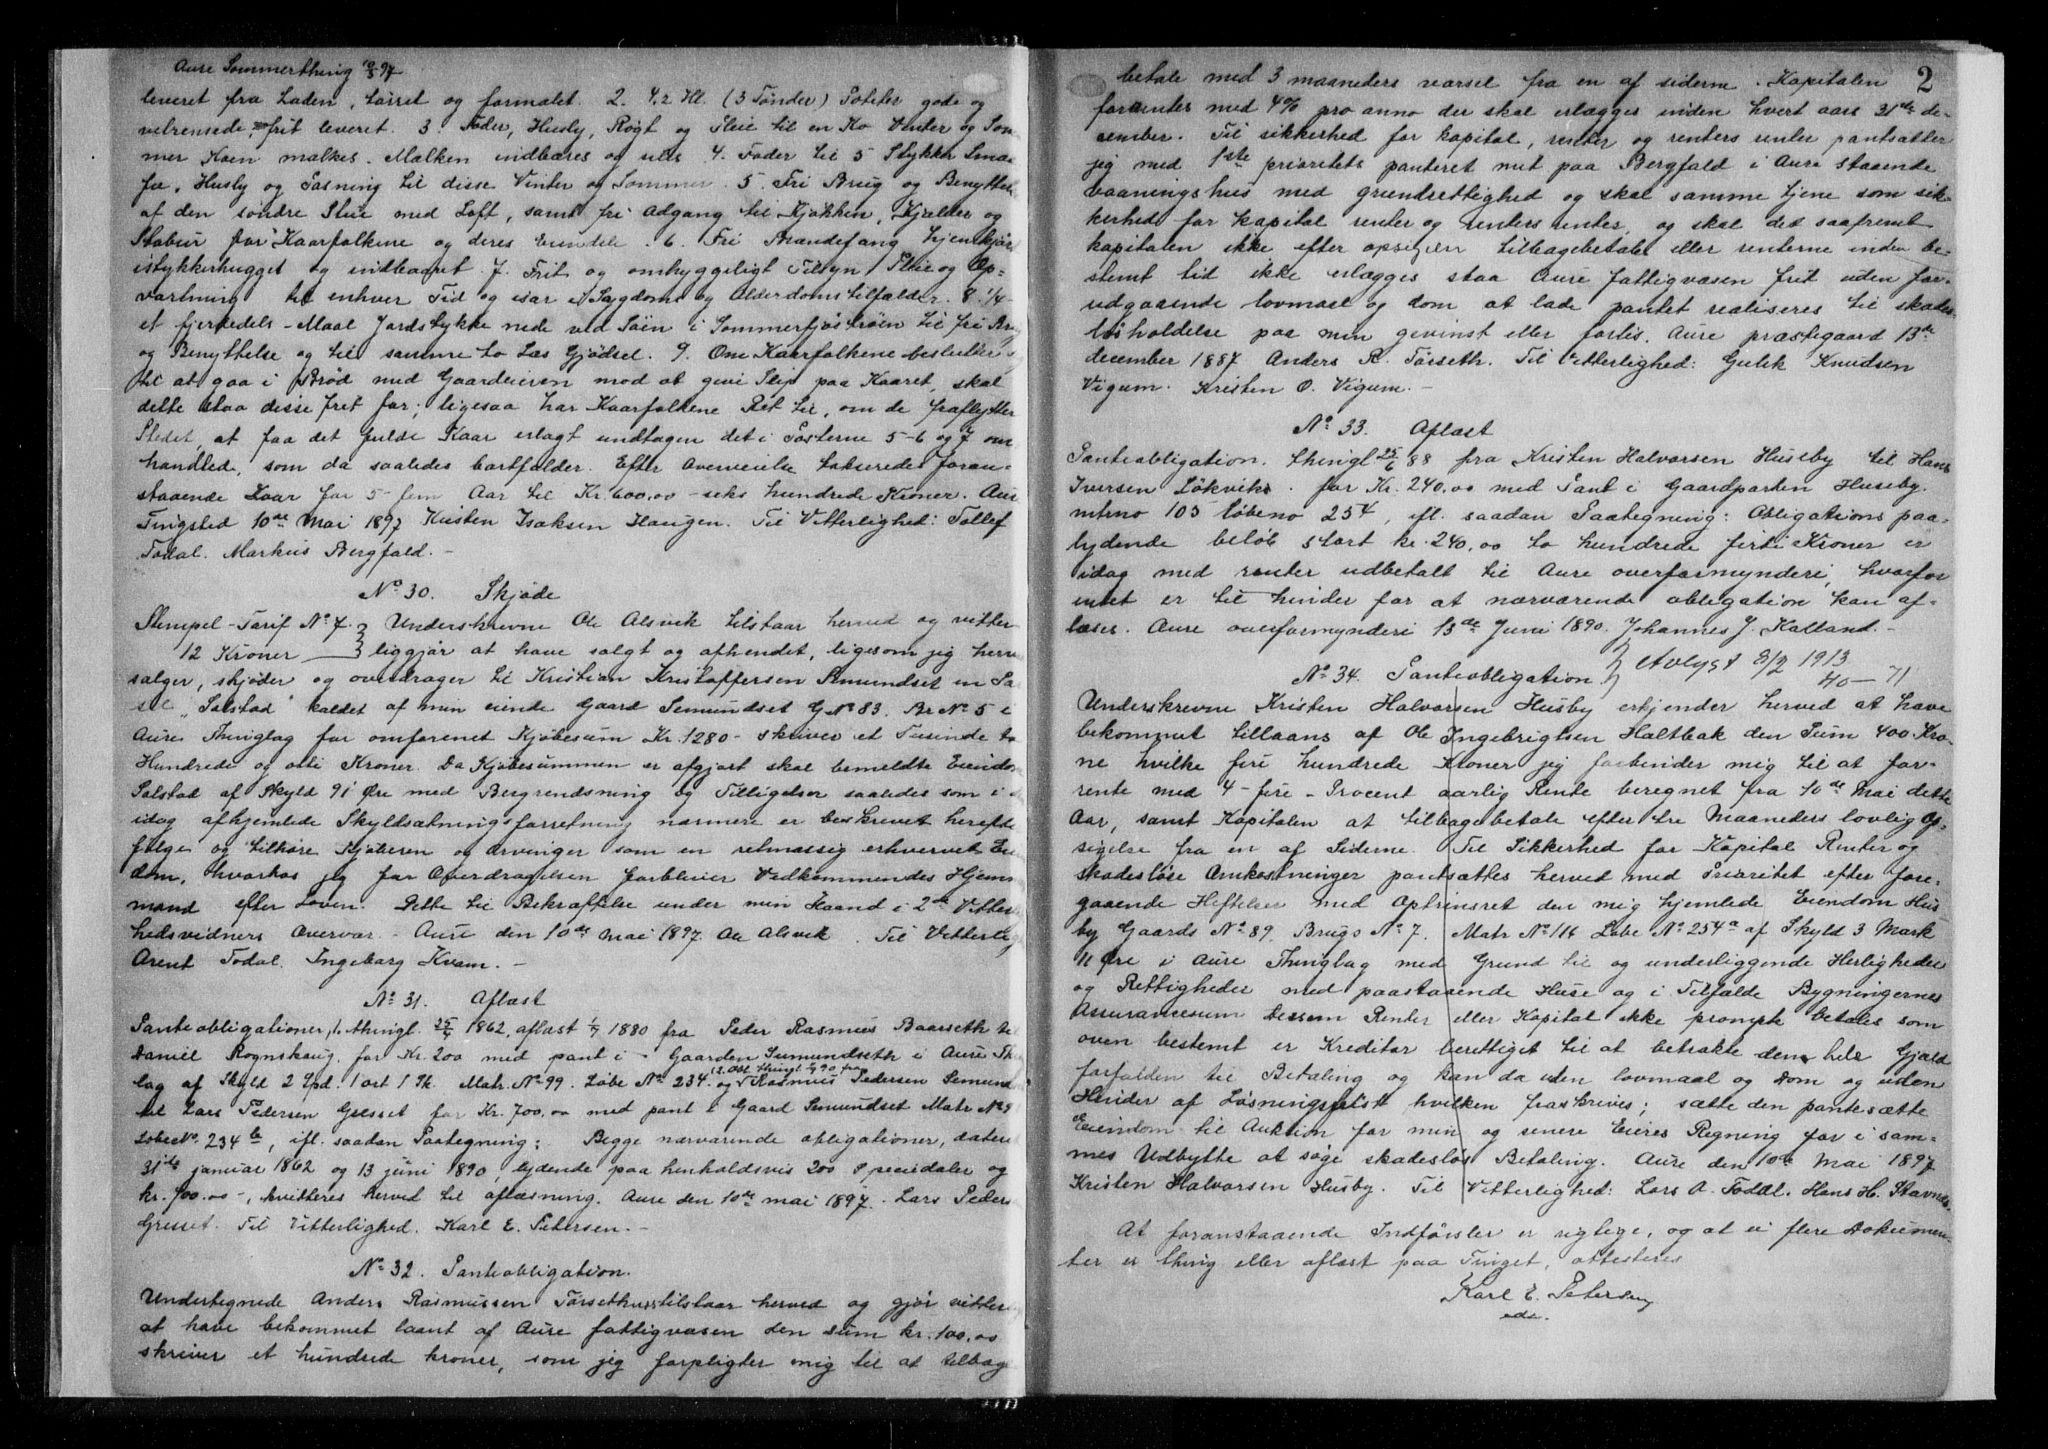 Aure Sommerthing 10/5 97
leveret fra Laden, tørret og formalet. 2. 4,2 Hl. (3 Tønder) Poteter gode og
velrensede, frit leveret. 3. Foder, Husly, Røgt og Pleie til en Ko Vinter og Som
mer Koen malkes. Mælken indbæres og siles 4. Foder til 5 Stykker Smaa
fæ, Husly og Pasning til disse Vinter og Sommer. 5. Fri Brug og Benyttel
af den søndre Stue med Loft, samt fri Adgang til Kjøkken, Kjælder og
Stabur for Kaarfolkene og deres Eiendele. 6. Fri Brændefang hjemkjørt
istykkerhugget og indbaaret. 7. Frit og omhyggeligt Tilsyn Pleie og Op-
vartning til enhver Tid og især i Sygdoms og Alderdomstilfælder. 8. 1/4
et fjerdedels-Maal Jordstykke nede ved Søen i Sommerfjøstrøen til fri Brug
og Benyttelse og til samme to Læs Gjødsel. 9. Om Kaarfolkene beslutter sig
til at gaa i Brød med Gaardeieren mod at give Slip paa Kaaret, skal
dette staa disse frit for; ligesaa har Kaarfolkene Ret til, om de fraflytter
Stedet, at faa det fulde Kaar erlagt undtagen det i Posterne 5-6 og 7 om
handlede, som da saaledes bortfalder. Efter Overveielse takseredes foran-
staaende Kaar for 5-fem Aar til Kr. 600,00 - seks hundrede Kroner. Aure
Tingsted 10de Mai 1897 Kristen Isaksen Haugen. Til Vitterlighed: Tollef
Todal. Markus Bergfald. -
No 30. Skjøde
Stempel-Tarif No 7. } Underskrevne Ole Alsvik tilstaar herved og vitter
12 Kroner } liggjør at have solgt og afhendet, ligesom jeg herved
sælger, skjøder og overdrager til Kristian Kristoffersen Semundset en Pa
"Solstad" kaldet af min eiende Gaard Semundset G No 83. Br No 5 i
Aure Thinglag for omforenet Kjøbesum Kr. 1280- skriver et Tusinde to
Hundrede og otti Kroner. Da Kjøbesummen er afgjort skal bemeldte Eiendom
Solstad af Skyld 91 Øre med Bergrendsning og Tilligelser saaledes som i
idag afhjemlede Skyldsætningsforretning nærmere er beskrevet herefter
følge og tilhøre Kjøberen og Arvinger som en retmæssig erhvervet Eien
dom, hvorhos jeg for Overdragelsen forbliver Vedkommendes Hjems
mand efter Loven. Dette til Bekræftelse under min Haand i 2de Vitterlig
hedsvidners Overvær. Aure den 10de Mai 1897. Ole Alsvik. Til Vitterlig
Arent Todal. Ingeborg Kvam. -
No 31. Aflæst
Panteobligationer, 1. thingl. 25/4 1862, aflæst 1/7 1880 fra Peder Rasmus Baarseth til
Daniel Rognskaug for Kr. 200 med pant i Gaarden Semundseth i Aure Th
2. obl. thingl. 1/7 90 fra
lag af Skyld 2 Spd. 1 ort 1 Sk. Matr. No 99. Løbe No 234. og Rasmus Pedersen Semunds
til Lars Pedersen Gresset for Kr. 700,00 med pant i Gaard Semundset Matr No 9
Løbe No. 234 b, ifl. saadan Paategning: Begge nærværende obligationer, dateret
31te januar 1862 og 13 juni 1890, lydende paa henholdsvis 200 Speciedaler og
kr. 700.00-, kvitteres herved til aflæsning. Aure den 10de mai 1897. Lars Peders
Gresset. Til Vitterlighed. Karl E. Petersen. -
No 32. Panteobligation.
Undertegnede Anders Rasmussen Torseth tilstaar herved og gjør vitter
at have bekommet laant af Aure fattigvæsen den sum kr. 100,00
skriver et hundrede kroner, som jeg forpligter mig til at tilbage
2
betale med 3 maaneders varsel fra en af siderne. Kapitalen
forrentes med 4% pro anno der skal erlægges inden hvert aars 31te de-
cember. Til sikkerhed for kapital, renter og renters rente pantsætter
jeg med 1ste prioritets panteret mit paa Bergfald i Aure staaende
vaaningshus med grundrettighed og skal samme tjene som sik-
kerhed for kapital renter og renters renter, og skal det saafremt
kapitalen ikke efter opsigelse tilbagebetales eller renterne inden be-
stemt tid ikke erlægges staa Aure fattigvæsen frit uden for-
udgaaende lovmaal og dom at lade pantet realiseres til skades-
løsholdelse paa min gevinst eller forlis. Aure præstegaard 13de
december 1887 Anders R. Torseth. Til Vitterlighed: Gulik Knudsen
Vigum. Kristen O. Vigum. -
No 33. Aflæst
Panteobligation. thingl 25/6 88 fra Kristen Halvorsen Huseby til Hans
Iversen Løkvik. for Kr. 240,00 med Pant i Gaardparten Huseby.
mtrno 103 løbeno 254, ifl. saadan Paategning: Obligations paa-
lydende beløb stort kr. 240,00 to hundrede førti Kroner er
idag med renter udbetalt til Aure overformynderi, hvorfor
intet er til hinder for at nærværende obligation kan af-
læses. Aure overformynderi 13de Juni 1890. Johannes J. Kalland. -
No 34. Panteobligation } Avlyst 8/2 1913
40 - 71
Underskrevne Kristen Halvorsen Husby erkjender herved at have
bekommet tillaans af Ole Ingebrigtsen Haltbak den Sum 400 Kro-
ne hvilke fire hundrede Kroner jeg forbinder mig til at for-
rente med 4-fire-Procent aarlig Rente beregnet fra 10de Mai dette
Aar, samt Kapitalen at tilbagebetale efter tre Maaneders lovlig Op-
sigelse fra en af Siderne. Til Sikkerhed for Kapital Renter og
skadesløse Omkostninger pantsættes herved med Prioritet efter fore-
gaaende Heftelser med Optrinsret den mig hjemlede Eiendom Hus
by Gaards No 89. Brugs No 7. Matr No 116 Løbe No 254 a af Skyld 3 Mark
11 Øre i Aure Thinglag med Grund til og underliggende Herligheder
og Rettigheder med paastaaende Huse og i Tilfælde Bygningernes
Assurancesum Dersom Renter eller Kapital ikke prompte betales som
oven bestemt er Kreditor berettiget til at betragte den hele Gjæld
forfalden til Betaling og kan da uden lovmaal og Dom og uden
Hinder af Løsningsfrist hvilken fraskrives; sætte den pantesatte
Eiendom til Auktion for min og senere Eieres Regning for i sam-
mes Udbytte at søge skadesløs Betaling. Aure den 10de Mai 1897
Kristen Halvorsen Husby. Til Vitterlighed: Lars A. Todal. Hans H. Stavnes.
At foranstaaende Indførsler er rigtige, og at ei flere Dokumen-
ter er thingl. eller aflæst paa Tinget, attesteres
Karl E. Petersen
eds.